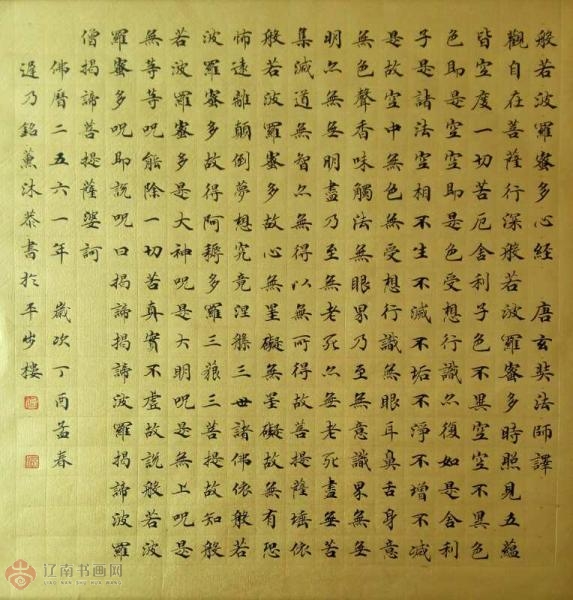 般若波羅蜜多心經 唐玄奘法師譯
觀自在菩薩行深般若波羅蜜多時照見五蘊
皆空度一切苦厄舍利子色不異空空不異色
色即是空空即是色受想行識亦復如是舍利
子是諸法空相不生不滅不垢不淨不增不減
是故空中無色無受想行識無眼耳鼻舌身意
無色聲香味觸法無眼界乃至無意識界無無
明亦無無明盡乃至無老死亦無老死盡無苦
集滅道無智亦無得以無所得故菩提薩埵依
般若波羅蜜多故心無罣礙無罣礙故無有恐
怖遠離顛倒夢想究竟涅槃三世諸佛依般若
波羅蜜多故得阿耨多羅三藐三菩提故知般
若波羅蜜多是大神呪是大明呪是無上呪是
無等等呪能除一切苦真實不虛故說般若波
羅蜜多呪即說呪曰揭諦揭諦波羅揭諦波羅
僧揭諦菩提薩婆訶
佛曆二五六一年 歲次丁酉孟春
遲乃銘薰沐恭書於平步樓
辽南书画网
LIAO NAN SHU HUA WANG